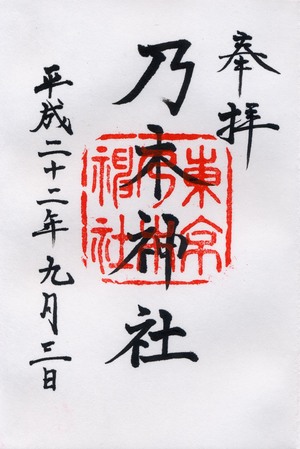 奉拝
乃木神社
東京
乃木
神社
平成二十二年九月三日